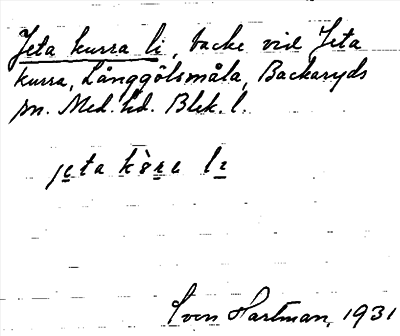 Jeta kurra li, backe vid Jeta
kurra, Långgölsmåla, Backaryds
sn. Med. hd. Blek. l.
jeta kòra li
Sven Hartman, 1931